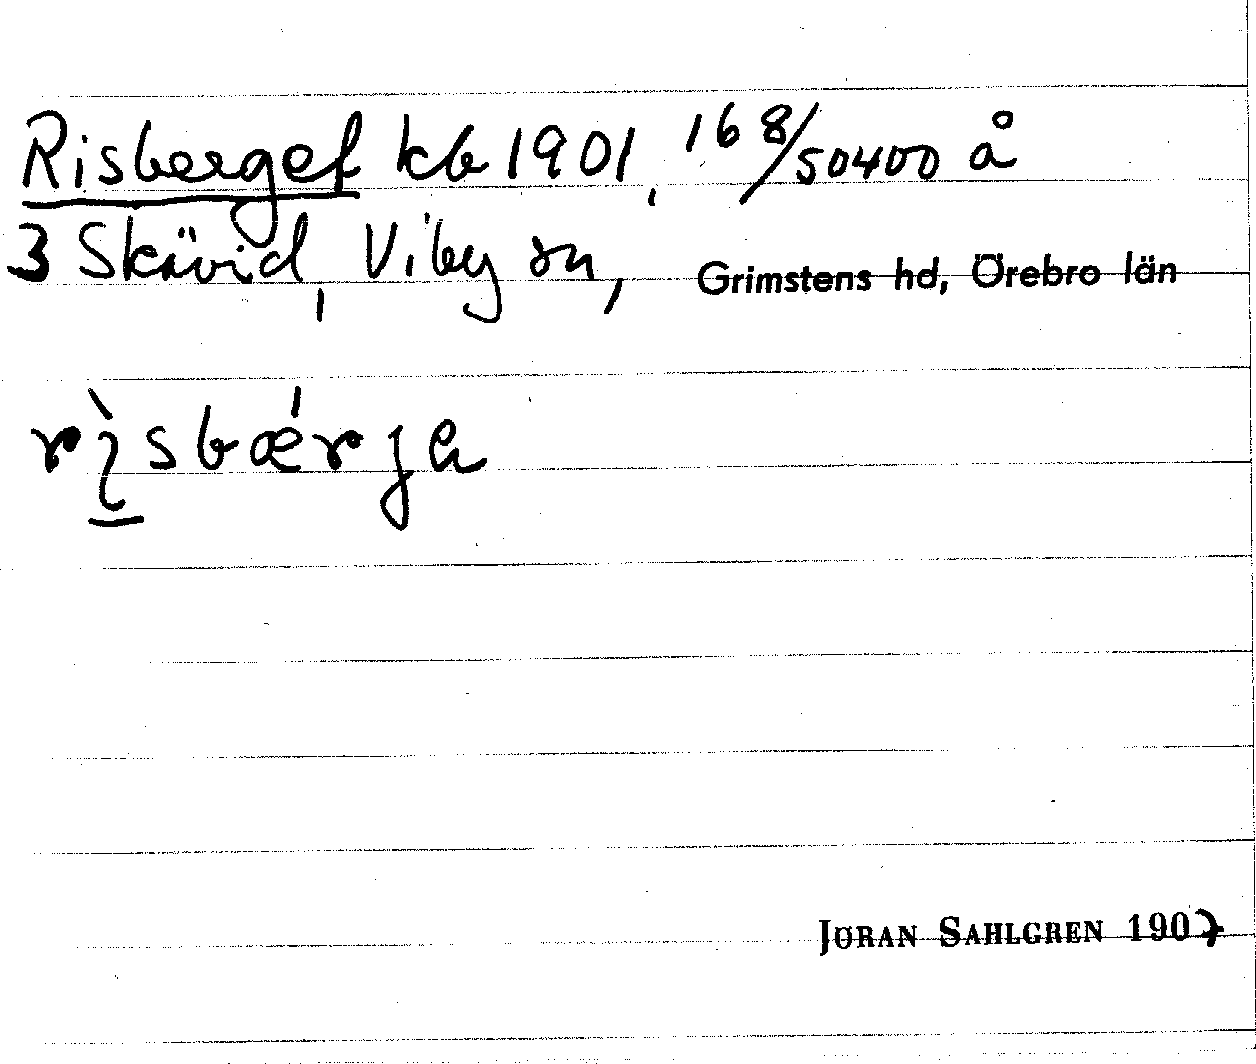 Risberget kb 1901, 168/50400 å
3 Skävid, Viby sn, Grimstens hd, Örebro län
rìsbǽrja
JÖRAN SAHLGREN 1907